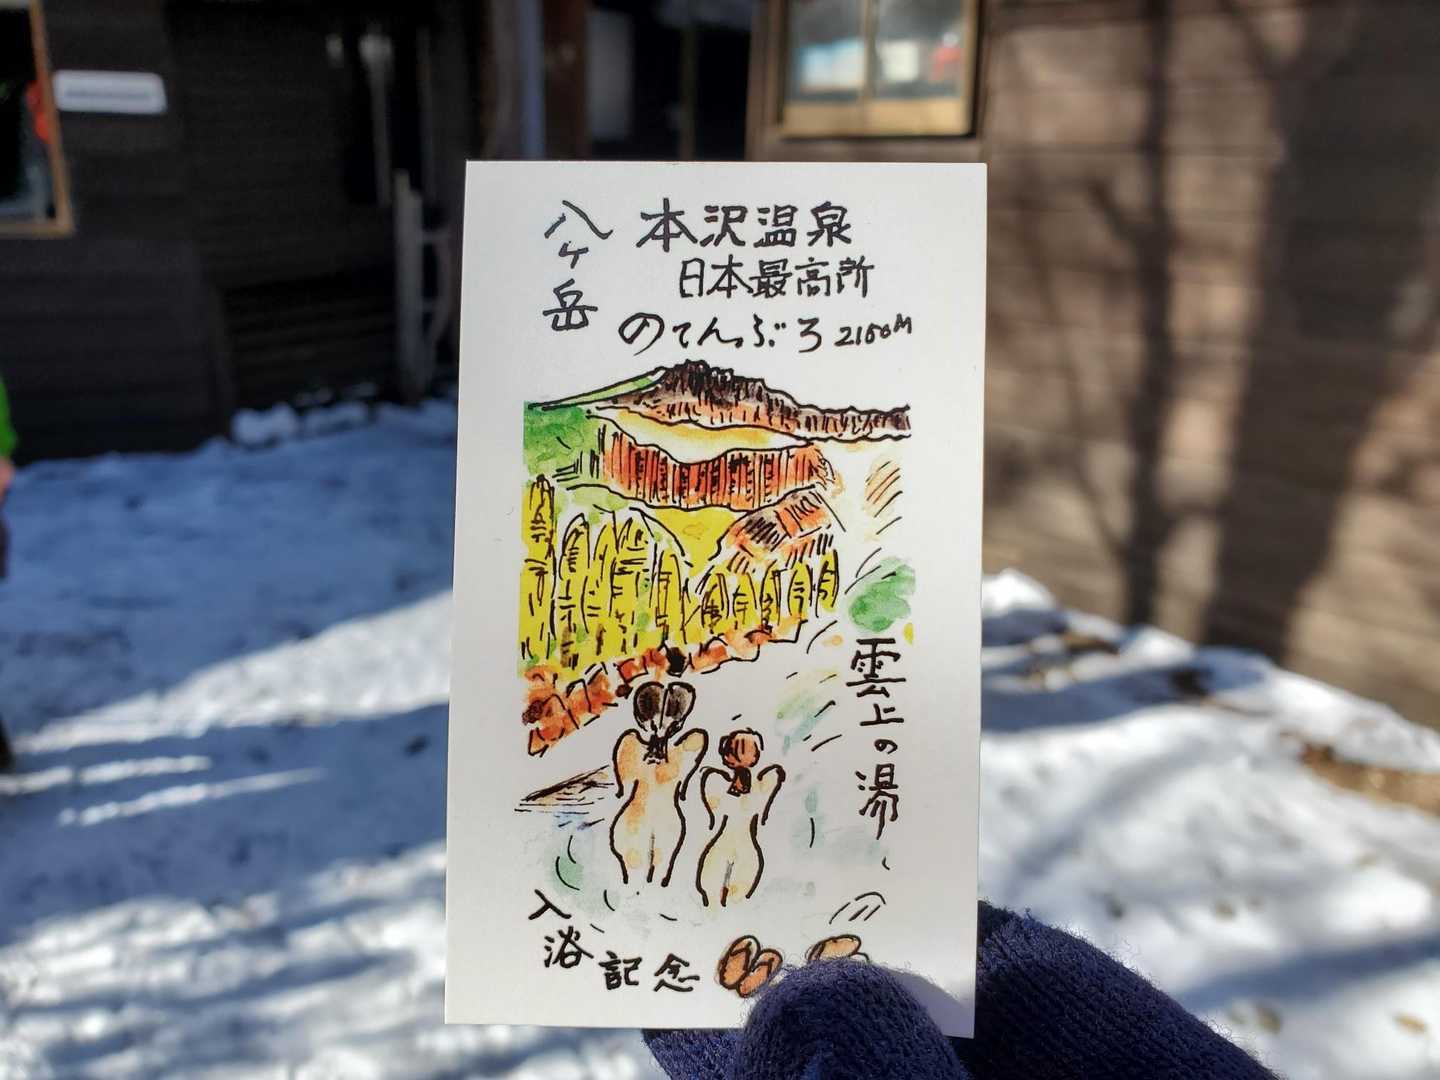 八ヶ岳
本沢温泉
日本最高所
のてんぶろ 2150M
雲上の湯
入浴記念